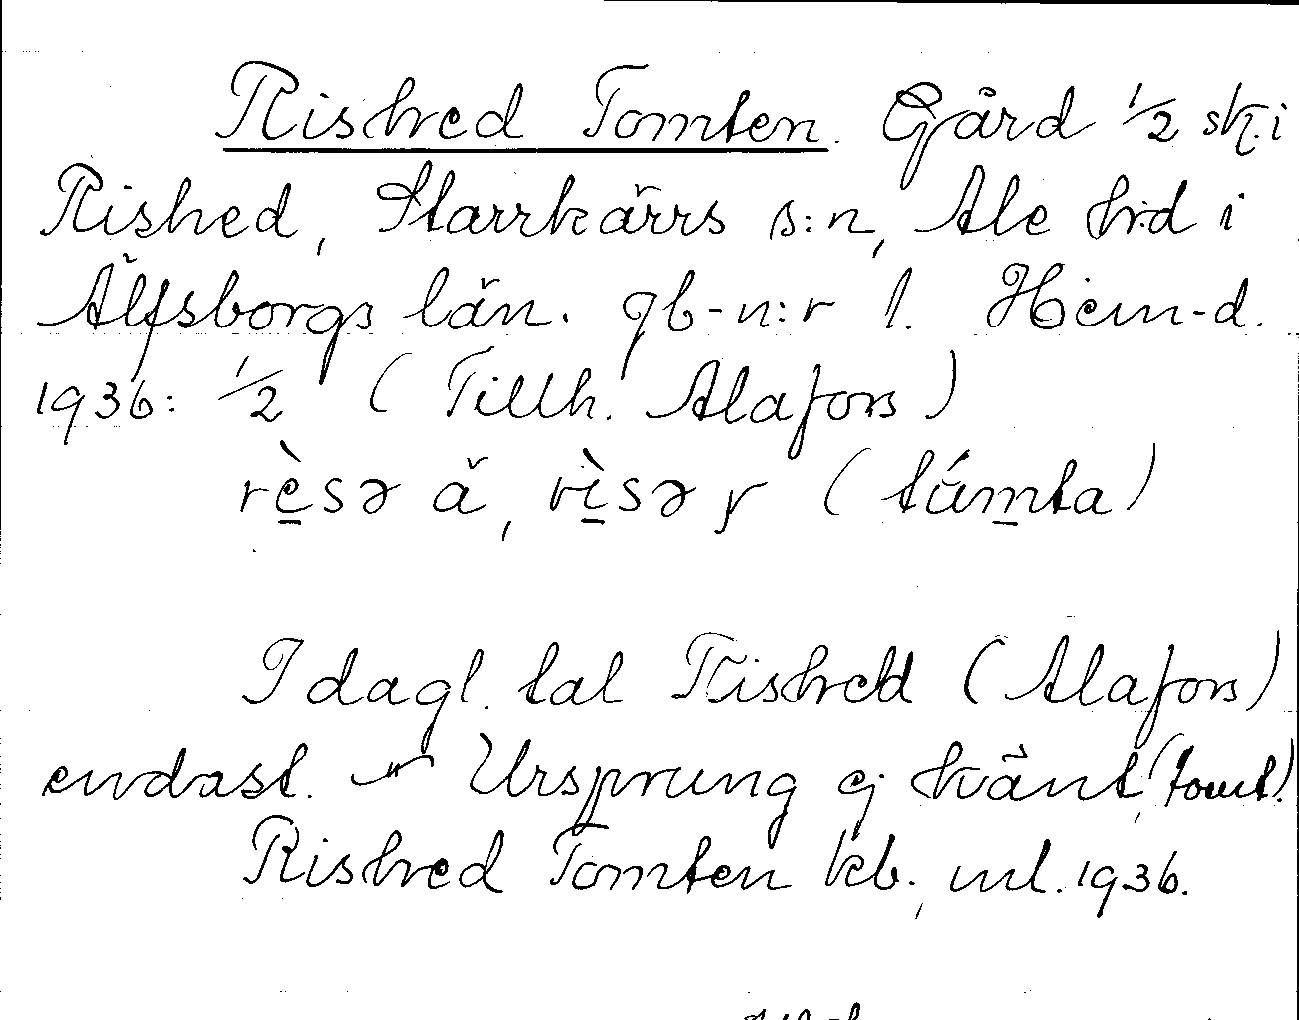 Rished Tomten. Gård 1/2 sk. i
Rished, Starrkärrs s:n, Ale h:d i
Älfsborgs län. gb-n:r 1. Hem-d.
1936: 1/2 (Tillh. Alafors)
(támta)
I dagl. tal Rished (Alafors)
endast. Ursprung ej känt (tomt).
Rished Tomten kb., ml. 1936.